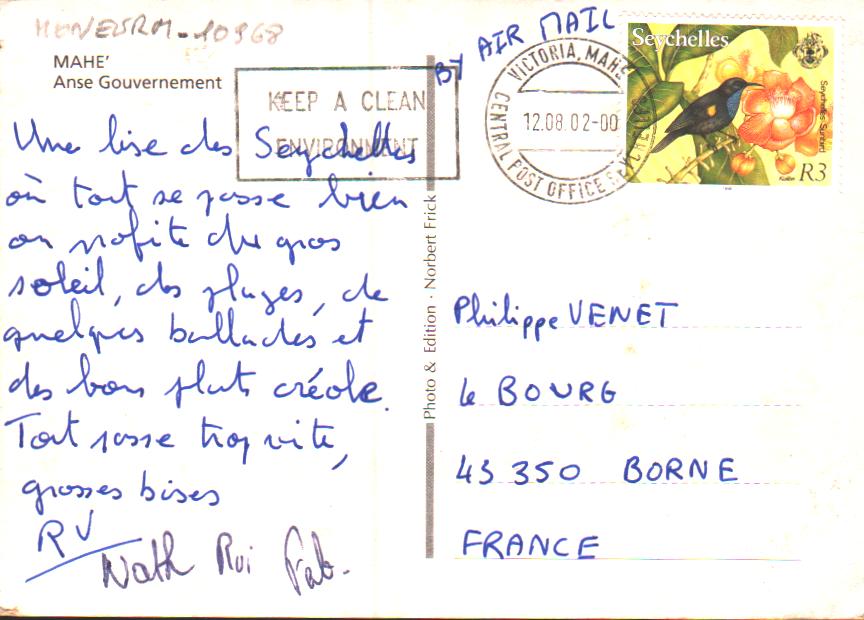 MAHE'
Anse Gouvernement
KEEP A CLEAN
ENVIRONMENT
BY AIR MAIL
VICTORIA, MAHE
CENTRAL POST OFFICE SEYCHELLES
12.08.02-00
Seychelles
Seychelles Sunbird
R3
Une bise des Seychelles
où tout se passe bien
on profite du gros
soleil, des plages, de
quelques ballades et
des bons plats créole.
Tout passe trop vite,
grosses bises
RV
Nath Roi Fab.
Photo & Edition · Norbert Frick
Philippe VENET
Le BOURG
43 350 BORNE
FRANCE